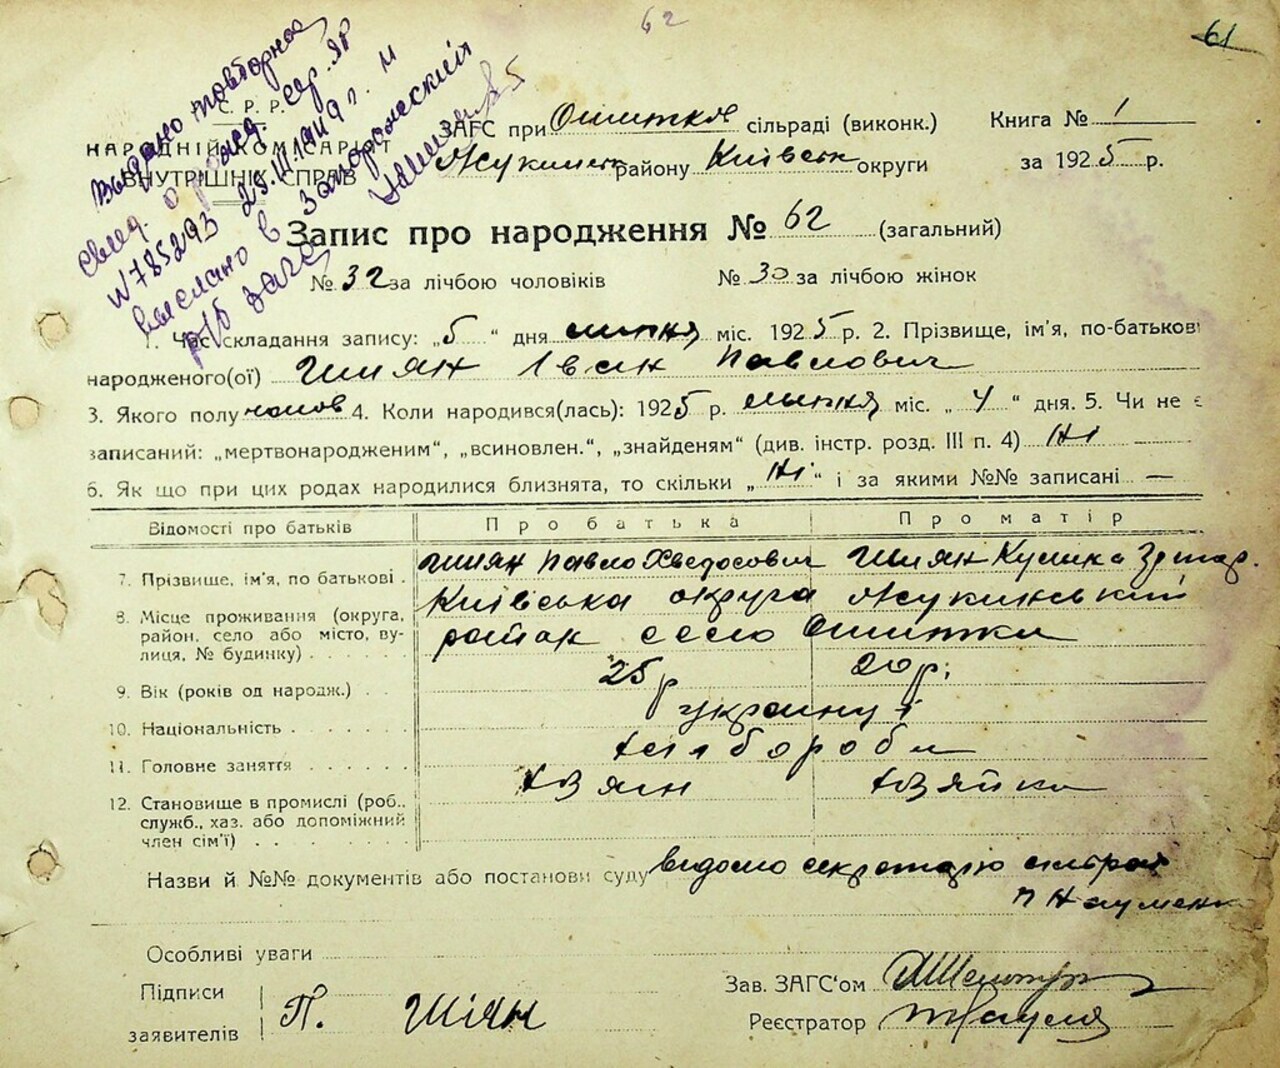 62
61
Выдано повторное
свид. о рожд. сер. ЯР
№785293 25.III.1949 г. и
выслано в Запорожский
р/б загс
У.С.Р.Р.
НАРОДНІЙ КОМІСАРІАТ
ВНУТРІШНІХ СПРАВ
ЗАГС при Ошитки сільраді (виконк.)
Книга № 1
Жукинськ району Київськ округи
за 1925 р.
Запис про народження № 62 (загальний)
№ 32 за лічбою чоловіків
№ 30 за лічбою жінок
1. Час складання запису: „5“ дня липня міс. 1925 р. 2. Прізвище, ім'я, по-батькові
народженого(ої) Шиян Іван Павлович
3. Якого полу чолов 4. Коли народився(лась): 1925 р. липня міс. „4“ дня. 5. Чи не є
записаний: „мертвонародженим“, „всиновлен.“, „знайденям“ (див. інстр. розд. III п. 4) Ні
6. Як що при цих родах народилися близнята, то скільки „Ні“ і за якими №№ записані —
Відомості про батьків
Про батька
Про матір
7. Прізвище, ім'я, по батькові .
Шиян Павло Хведосович
Шиян Кулина Григор.
8. Місце проживання (округа,
район, село або місто, ву-
лиця, № будинку)
Київська округа Жукинський
район село Ошитки
9. Вік (років од народж.)
25 р
20 р.
10. Національність
українці
11. Головне заняття
хлібороби
12. Становище в промислі (роб.,
служб., хаз. або допоміжний
член сім'ї)
хзяін
хзяйка
Назви й №№ документів або постанови суду відомо секретарю сільради
П Науменк
Особливі уваги
Підписи
заявителів
П. Шіян
Зав. ЗАГС'ом
Реєстратор